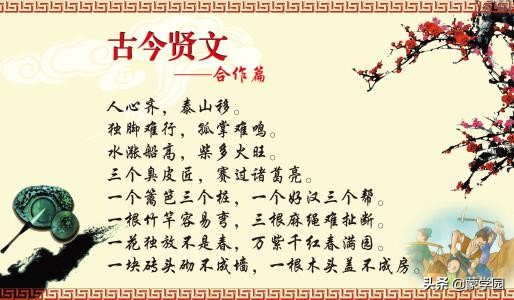 古今贤文
——合作篇
人心齐，泰山移。
独脚难行，孤掌难鸣。
水涨船高，柴多火旺。
三个臭皮匠，赛过诸葛亮。
一个篱笆三个桩，一个好汉三个帮。
一根竹竿容易弯，三根麻绳难扯断。
一花独放不是春，万紫千红春满园。
一块砖头砌不成墙，一根木头盖不成房。
头条@蒙学园